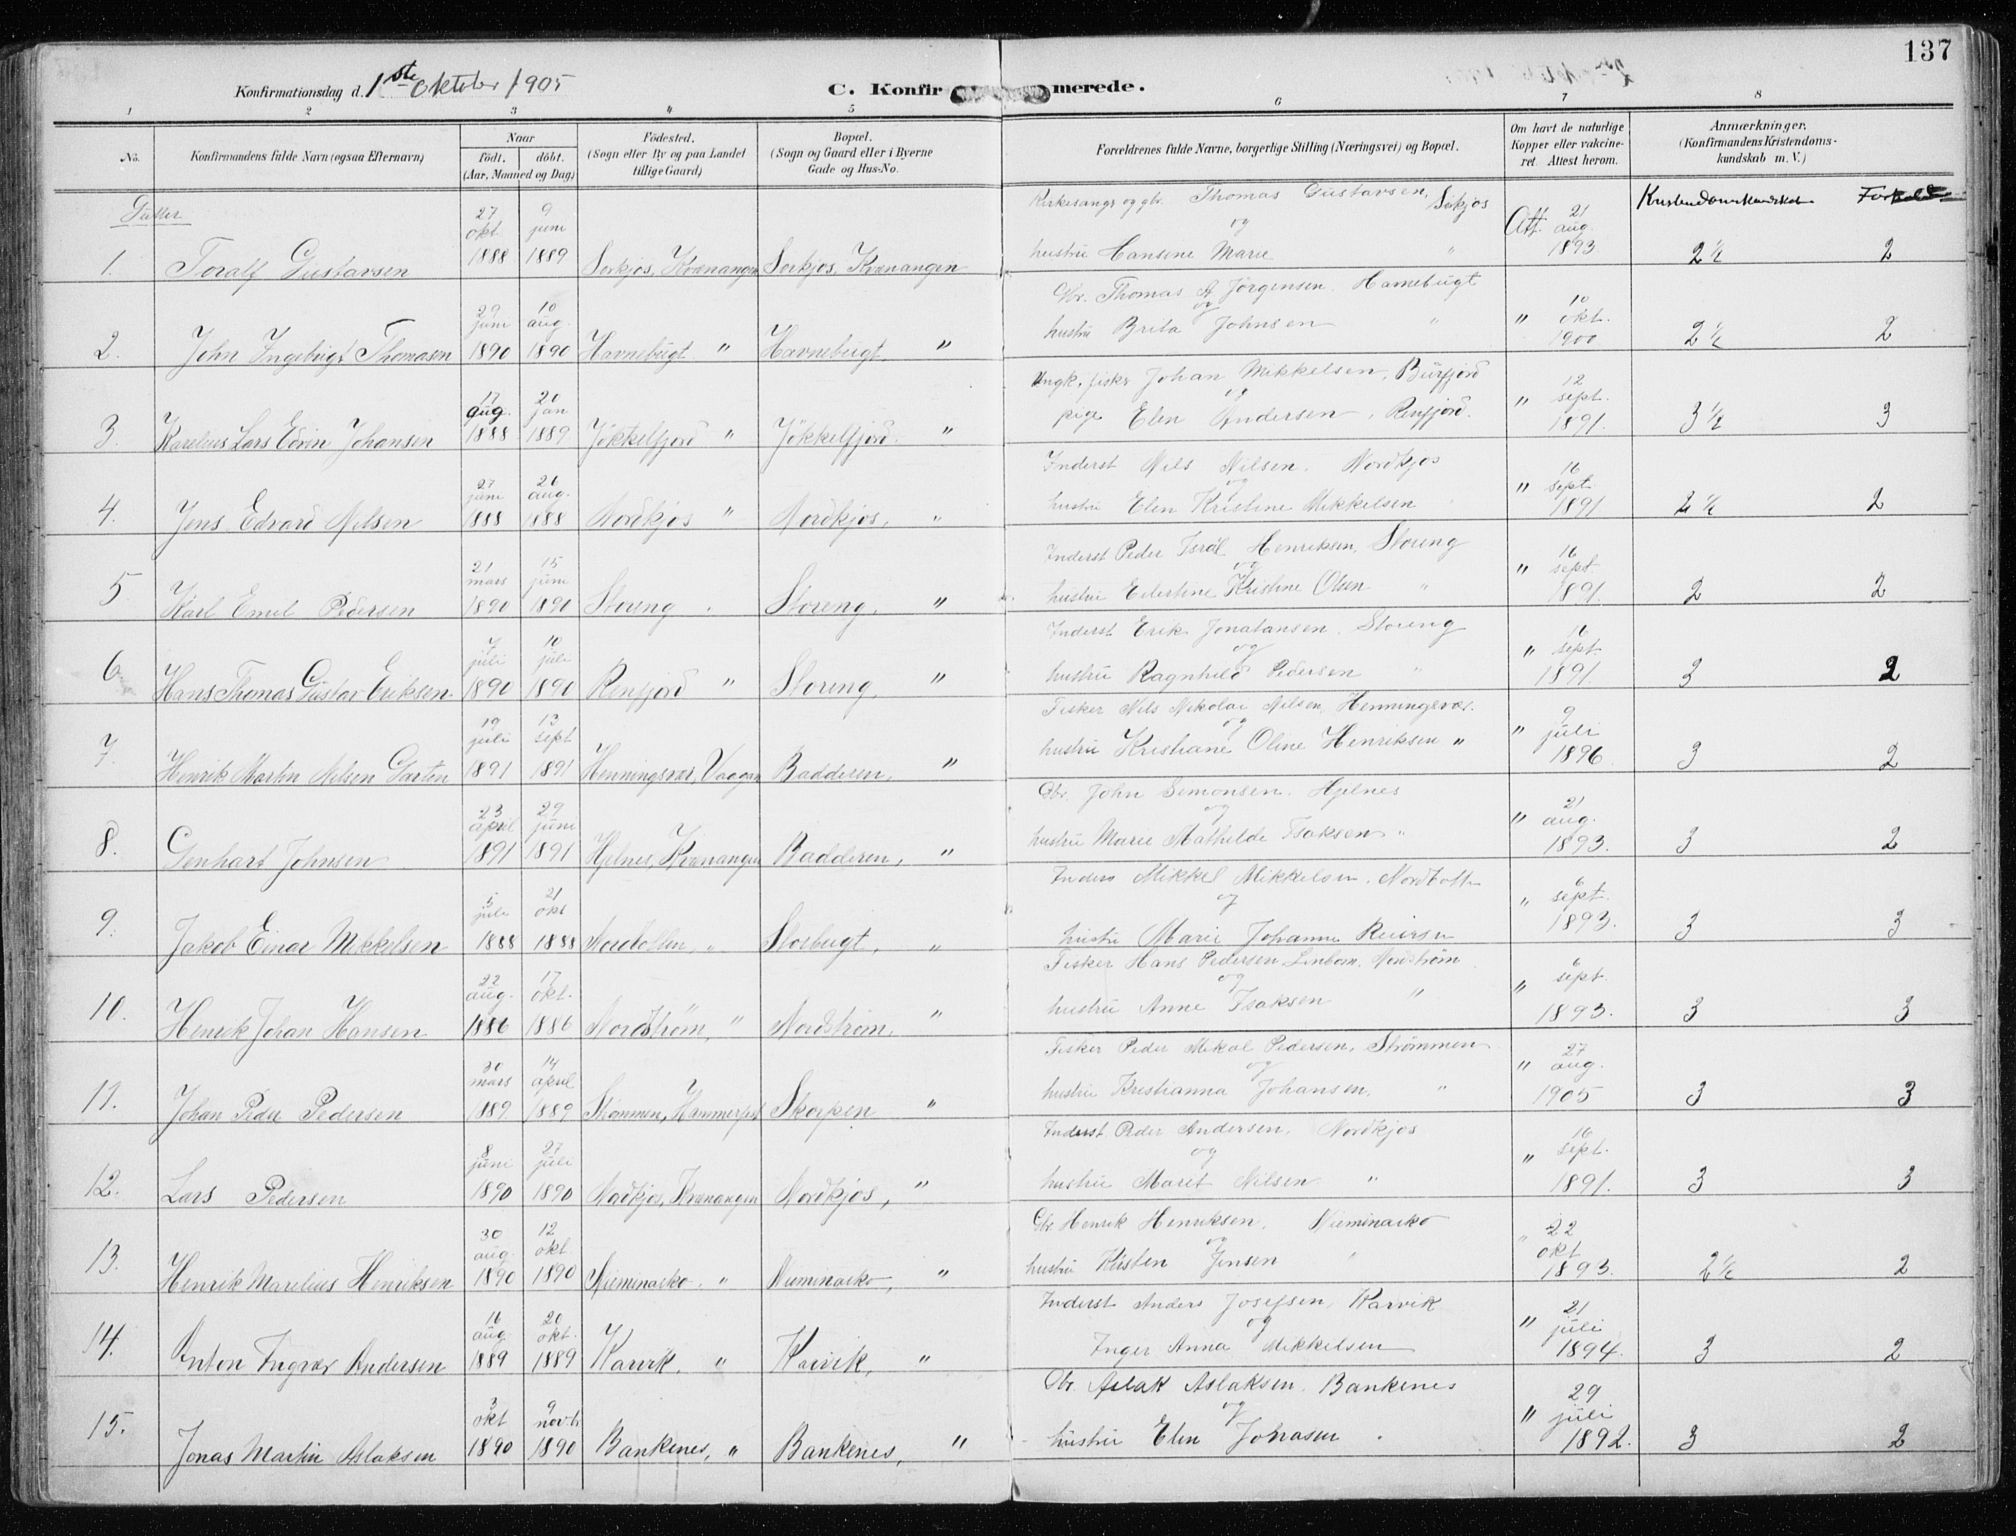 137
Konfirmationsdag d. 1ste Oktober 1905
C. Konfirmerede.
1 2 3 4 5 6 7 8
No. Konfirmandens fulde Navn (ogsaa Efternavn) Naar født. døbt. (Aar, Maaned og Dag) Fødested. (Sogn eller By og paa Landet tillige Gaard) Bopæl. (Sogn og Gaard eller i Byerne Gade og Hus-No. Forældrenes fulde Navne, borgerlige Stilling (Næringsvei) og Bopæl. Om havt de naturlige Kopper eller vakcineret. Attest herom. Anmærkninger. (Konfirmandens Kristendomskundskab m. V.)
Gutter
Kristendomskundskab
1. Toralf Gustavsen 27 okt. 1888 9 juni 1889 Sørkjos, Kvænangen Sørkjos, Kvænangen Kirkesangr og gbr. Thomas Gustavsen, Sørkjos og hustru Hansine Marie " Att. 21 aug. 1893 2½ 2
2. John Ingebrigt Thomasen 29 juni 1890 10 aug. 1890 Havnebugt " Havnebugt, " Gbr. Thomas A Jörgensen. Havnebugt og hustru Brita Johnsen " " 10 okt. 1900 2½ 2
3. Karelius Lars Edvin Johansen 17 aug. 1888 20 jan 1889 Jökkelfjord " Jökkelfjord. " Ungk. fisker Johan Mikkelsen, Burfjord og pige Elen Andersen, Renfjord. " 12 sept. 1891. 3½ 3
4. Jens Edvard Nilsen 27 juni 1888 26 aug. 1888 Nordkjos " Nordkjos, " Inderst Nils Nilsen. Nordkjos og hustru Elen Kristine Mikkelsen " 16 sept. 1891 2½ 2
5 Karl Emil Pedersen 21 mars 1890 15 juni 1890 Storeng " Storeng, " Inderst Peder Isräl Henriksen, Storeng og hustru Eilertine Kristine Olsen " " 16 sept 1891. 2 2
6 Hans Thomas Gustav Eriksen. 7 juli 1890 10 juli 1890 Renfjord " Storeng, " Inderst Erik Jonatansen. Storeng og hustru Ragnhild Pedersen " " 16 sept 1891. 3 2
7 Henrik Martin Nilsen Garten 19 juli 1891 13 sept 1891 Henningsvær, Vaagan Badderen, " Fisker Nils Nikolai Nilsen, Henningsvær. og hustru Kristiane Oline Henriksen " " 9 juli 1896. 3 2
8. Genhart Johnsen 23 april 1891 29 juni 1891 Hjelnes, Kvænangen Badderen, " Gbr. John Simonsen. Hjelnes og hustru Marie Mathilde Isaksen " " 21 aug. 1893. 3 2
9. Jakob Einar Mikkelsen 5 juli 1888 21 okt 1888 Nordbotten, " Storbugt, " Inders Mikkel Mikkelsen. Nordbotten og hustru Marie Johanne Reiersen " 6 sept. 1893. 3 3
10. Henrik Johan Hansen 22 aug. 1886 17 okt. 1886 Nordstrøm, " Nordstrøm, " Fisker Hans Pedersen Linbom. Nordstrøm og hustru Anne Isaksen " " 6 sept. 1893. 3 3
11. Johan Peder Pedersen 30 mars 1889 14 april 1889 Strømmen, Hammerfest Skorpen " Fisker Peder Mikal Pedersen, Strømmen og hustru Kristianna Johansen, " " 27 aug. 1905 3 3
12. Lars Pedersen 8 juni 1890 27 juli 1890 Nordkjos, Kvænangen Nordkjos, " Inderst Peder Andersen. Nordkjos og hustru Marit Nilsen " " 16 sept. 1891. 3 3
13. Henrik Marelius Henriksen 30 aug. 1890 12 okt. 1890 Nieminaiko, " Nieminaiko, " Gbr. Henrik Henriksen. Nieminaiko og hustru Kristen Jensen " " 22 okt 1893. 2½ 2
14. Anton Ingvar Andersen 16 aug. 1889 20 okt. 1889 Karvik, " Karvik, " Inderst Anders Josefsen, Karvik og Inger Anna Mikkelsen " 21 juli 1894. 3 2
15. Jonas Martin Aslaksen 3 okt 1890 9 novb. 1890 Bankenes, " Bankenes, " Gbr. Aslak Aslaksen. Bankenes og hustru Elen Johnasen " " 29 juli 1892. 3 2